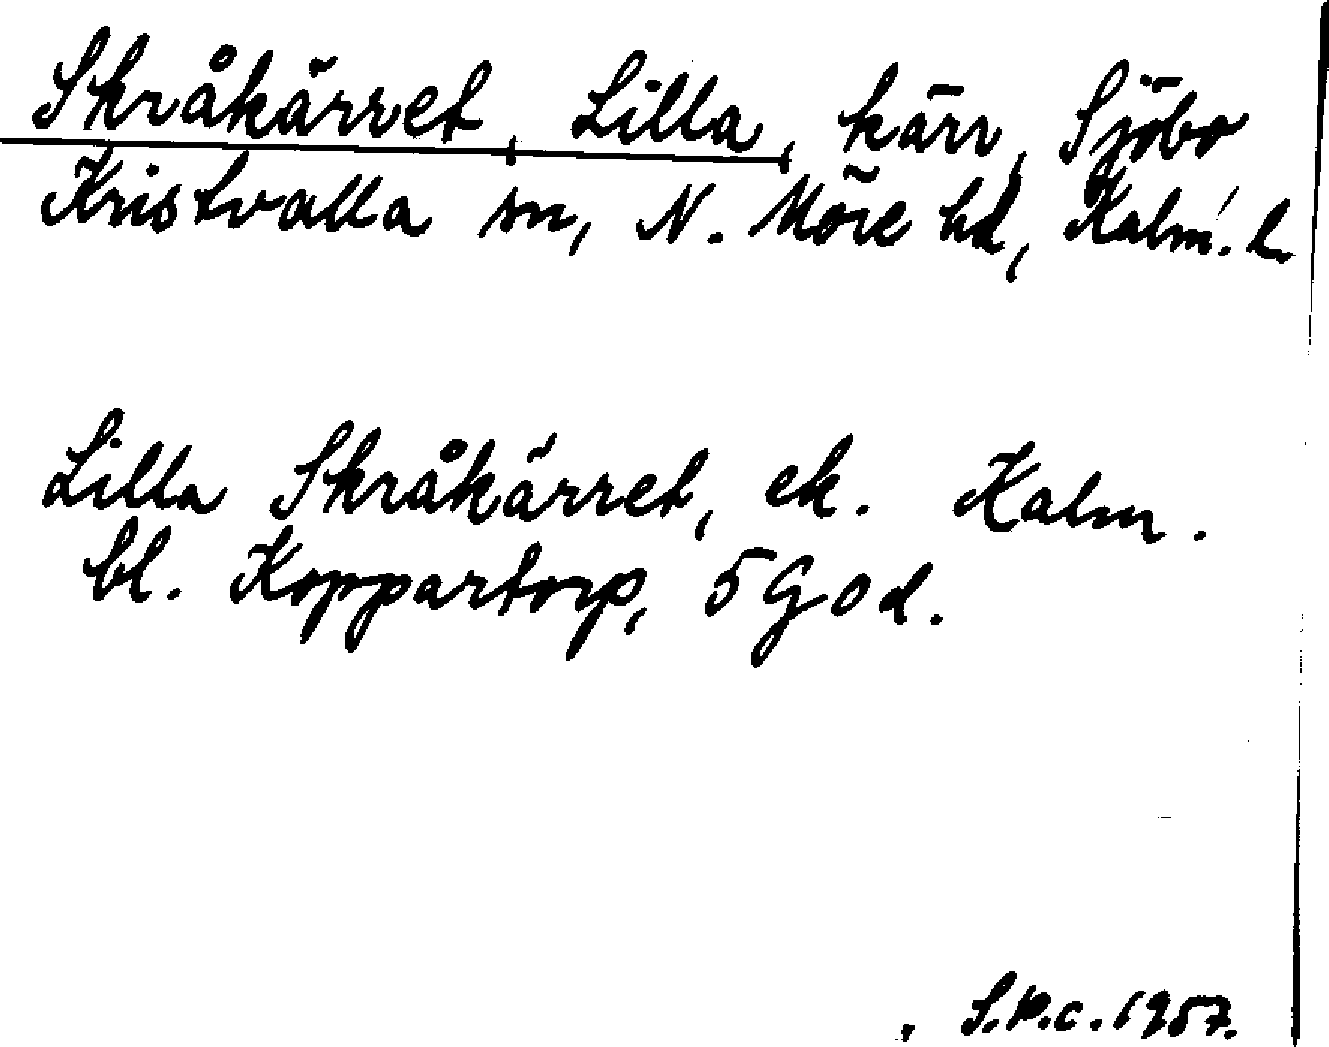 Skråkärret, Lilla, kärr, Sjöbo
Kristvalla sn, N. Möre hd, Kalm. l.
Lilla Skråkärret, ek. Kalm.
bl. Koppartorp, 5 G o d.
S.P.c. 1957.